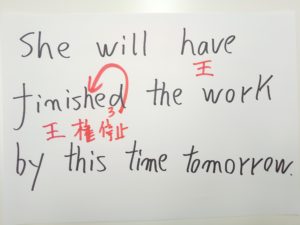 She will have
王
finished the work
3
王 権 停止
by this time tomorrow.